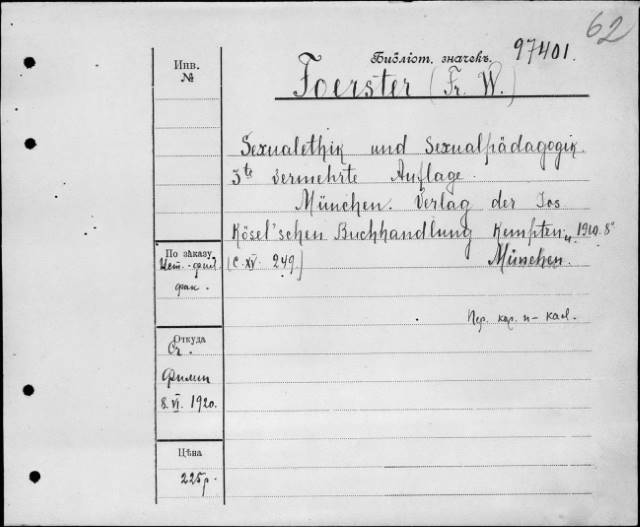 62
Библіот. значекъ. 97401.
Инв.
№
Foerster (Fr. W.)
Sexualethik und Sexualpädagogik.
3te vermehrte Auflage.
München. Verlag der Jos.
Kösel'schen Buchhandlung Kempten u. 1910. 8°
München.
(C. XV. 249.)
По заказу
Ист.-фил.
фак.
Пер. кор. и-кал.
Откуда
Ст.
Филип
8. VI. 1920.
Цѣна
225 р.